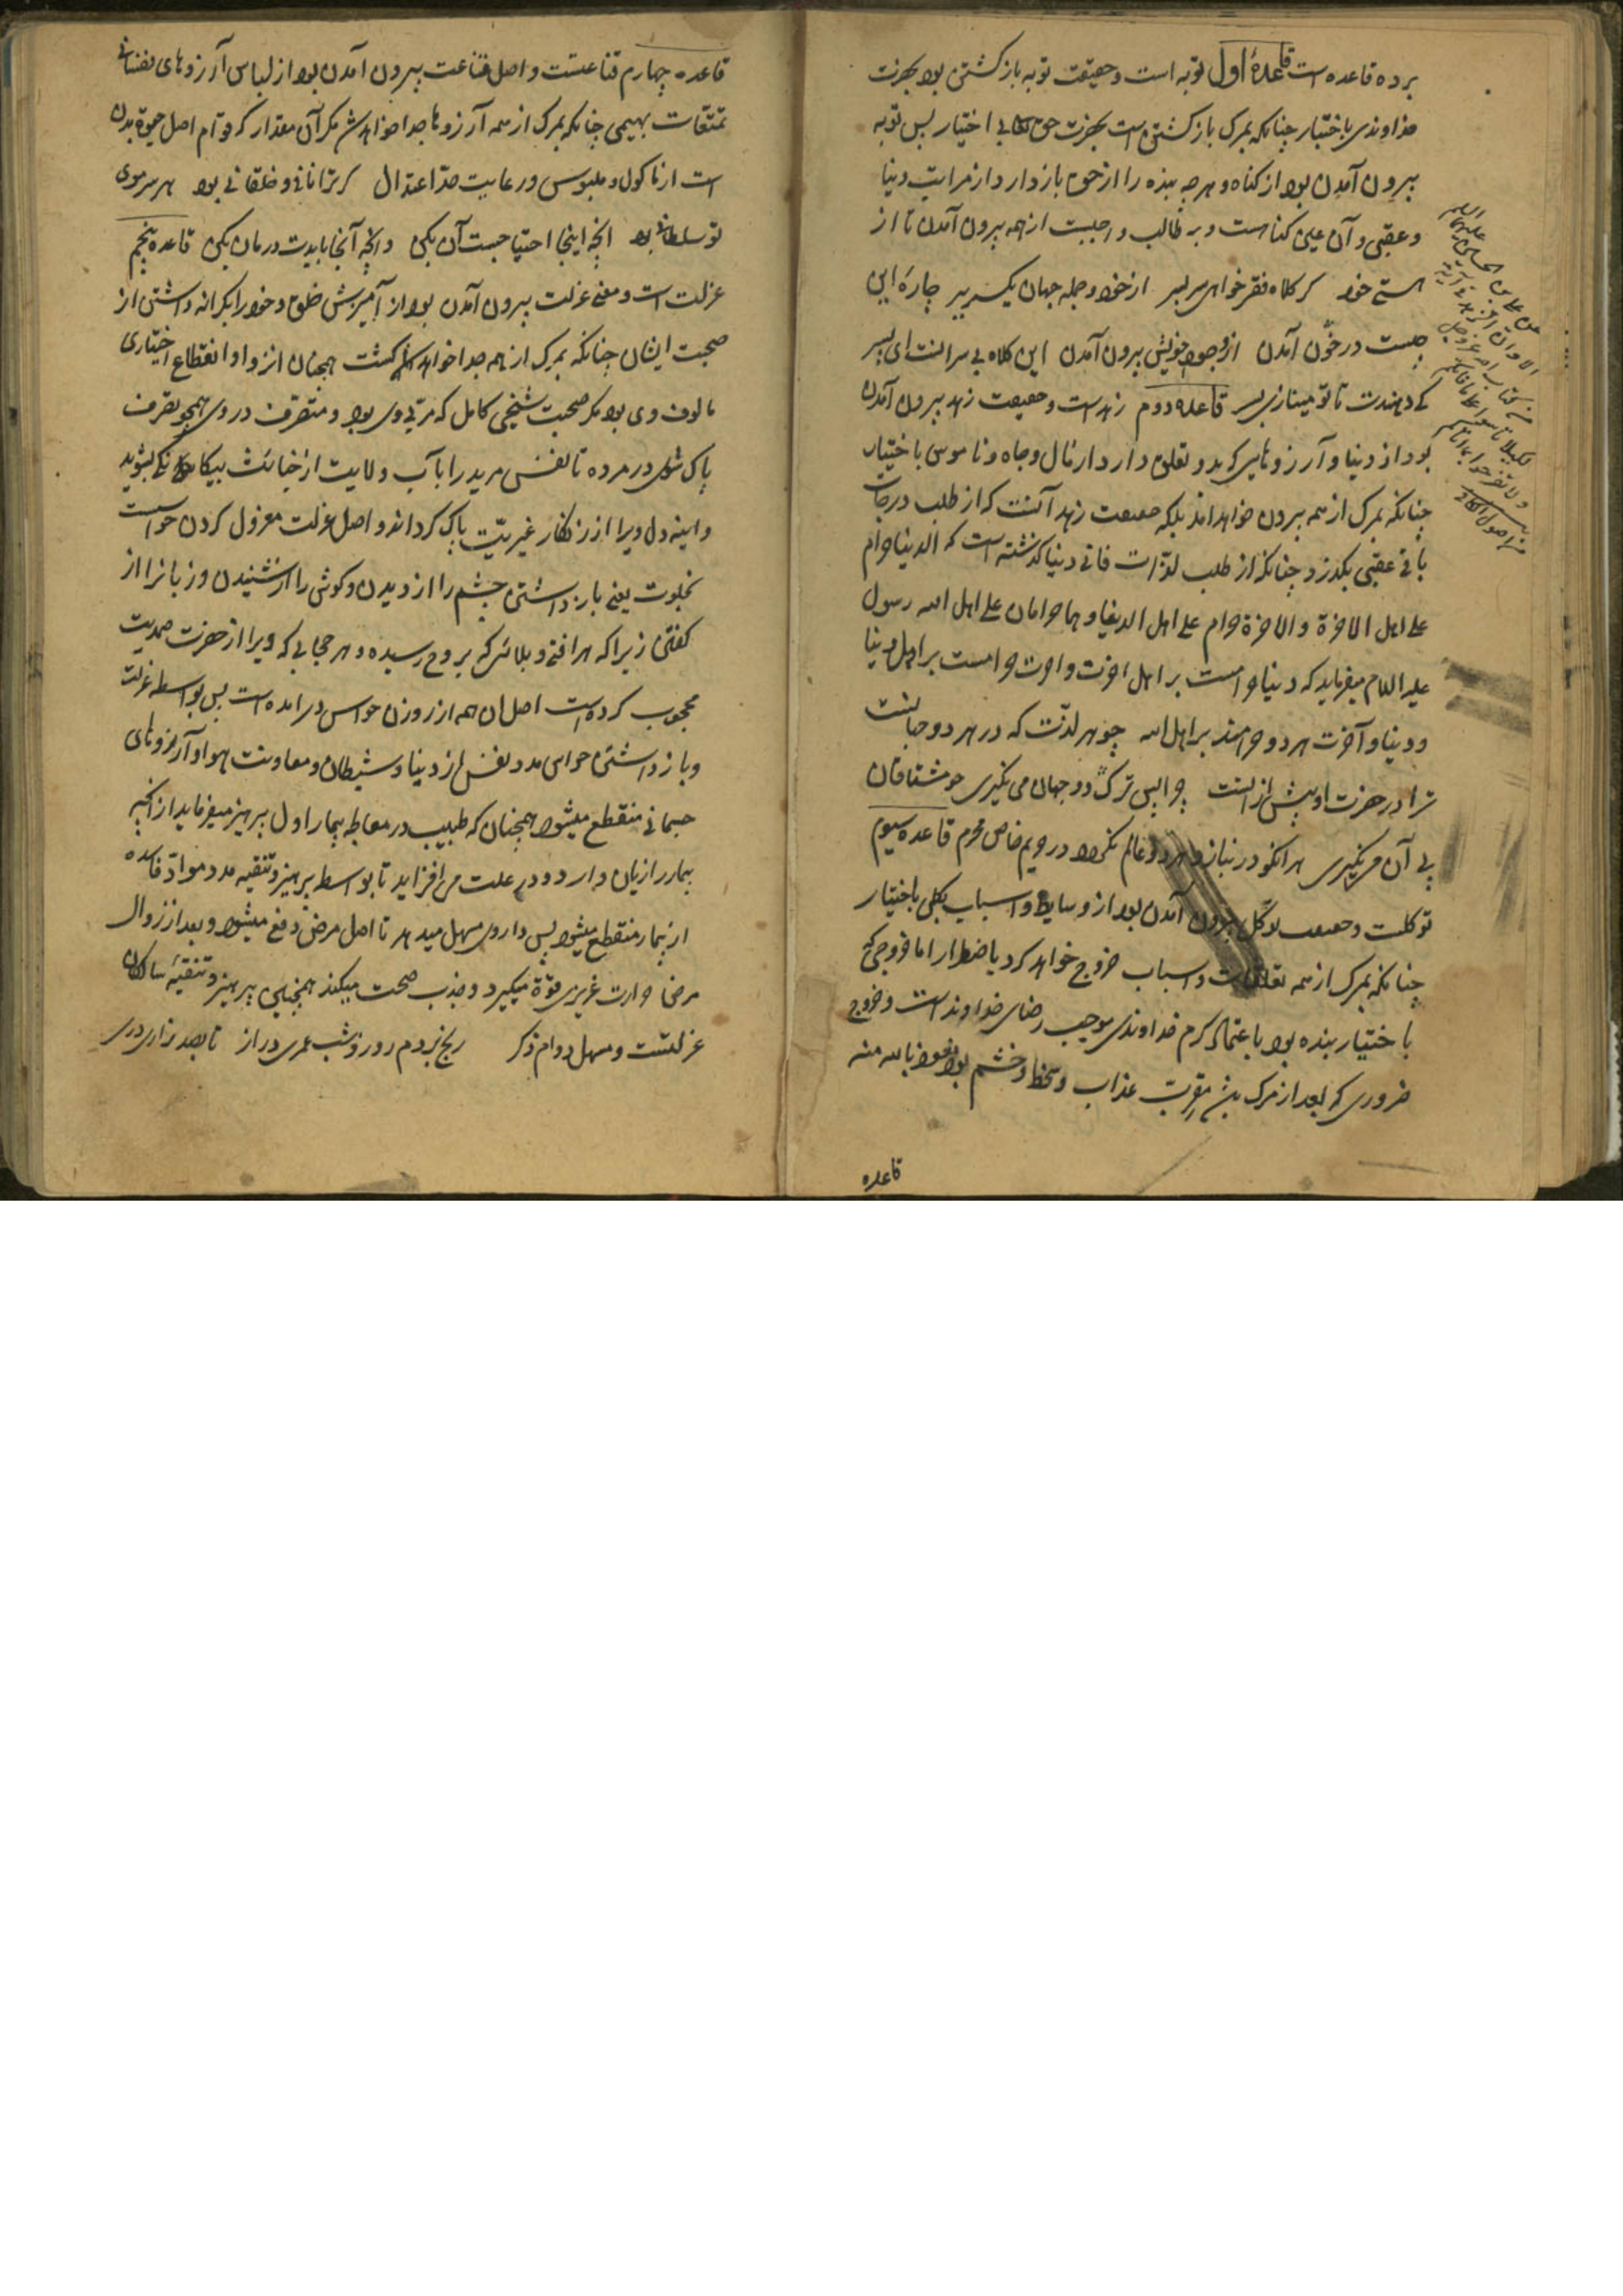 برده قاعده است قاعدهٔ اول توبه است و حقیقت توبه بازگشتن بود بحضرت
خداوندی باختیار چنانکه بمرک بازگشتن است بحضرت حق تعالی بی اختیار پس توبه
بیرون آمدن بود از کناه و هر چه بنده را از حق بازدارد از مراتب دنیا
و عقبی و آن عین کناهست و بر طالب واجبست از همه بیرون آمدن تا از
هستی خود کر کلاه فقر خواهی سر ببر از خود و جمله جهان یکسر ببر چارهٔ این
چیست در خون آمدن از وجود خویش بیرون آمدن این کلاه بی سرانست ای پسر
کی دهندت تا تو مینازی بسر قاعده دوم زهدست و حقیقت زهد بیرون آمدن
بود از دنیا و آرزوهای که بدو تعلق دارد از مال و جاه و ناموس باختیار
چنانکه بمرک از همه بیرون خواهد آمد بلکه حقیقت زهد آنست که از طلب درجات
باقی عقبی بکذرد چنانکه از طلب لذّات فانی دنیا کذشته است که الدنیا حرام
علی اهل الاخرة والاخرة حرام علی اهل الدنیا وهما حرامان علی اهل الله رسول
علیه السلام میفرماید که دنیا حرامست بر اهل اخرت و اخرت حرامست بر اهل دنیا
و دنیا و آخرت هر دو حرامند بر اهل الله چو هر لذّت که در هر دو جهانست
ترا در حضرت او بیش از انست چرا پس ترک دو جهان می نکیری چو مشتاقان
پی آن می نکیری هر انکو در نباز و هر دو عالم نکردد در حریم خاص محرم قاعده سیوم
توکلست و حقیقت توکّل بیرون آمدن بود از وسایط و اسباب بکلی باختیار
چنانکه بمرک از همه تعلقات و اسباب خروج خواهد کرد باضطرار اما خروجی که
باختیار بنده بود باعتماد کرم خداوندی موجب رضای خداوندست و خروج
ضروری که بعد از مرک عذاب و سخط و خشم بود نعوذ بالله منه
قاعده
قاعده چهارم قناعتست و اصل قناعت بیرون آمدن بود از لباس آرزوهای نفسانی
تمتّعات بهیمی چنانکه بمرک از همه آرزوها جدا خواهد شد مکر آن مقدار که قوام اصل حیوة بدن
است از ماکول و ملبوس و رعایت حدّ اعتدال کر ترا نانی و خلقانی بود هر سر موی
تو سلطانی بود انچه اینجا احتیاجست آن بکن وانچه آنجا بایدت درمان بکن قاعده پنجم
عزلت است و معنی عزلت بیرون آمدن بود از آمیزش خلق و خود را بکرانه داشتن از
صحبت ایشان چنانکه بمرک از همه جدا خواهد کشت همچنان انزوا و انقطاع اختیاری
مالوف وی بود مکر صحبت شیخی کامل که مربّی وی بود و متصرّف در وی همچو تصرف
پاک شوی در مرده تا نفس مرید را بآب ولایت از خبائث بیکانکی بشوید
و اینه دل ویرا از زنکار غیریّت پاک کرداند و اصل عزلت معزول کردن حواسست
بخلوت یعنی بازداشتن چشم را از دیدن و کوش را از شنیدن و زبانرا از
کفتن زیرا که هر افتی و بلائی که بروح رسیده و هر حجابی که ویرا از حضرت صمدیت
محجوب کرده است اصل ان همه از روزن حواس درامده است پس بواسطه عزلت
و بازداشتن حواس مدد نفس از دنیا و شیطان و معاونت هوا و آرزوهای
جسمانی منقطع میشود همچنان که طبیب در معالجه بیمار اول بپرهیز میفرماید از انچه
بیمار را زیان دارد و در علت می افزاید تا بواسطه پرهیز و تنقیه مدد موادّ فاسده
از بیمار منقطع میشود پس داروی مسهل میدهد تا اصل مرض دفع میشود و بعد از زوال
مرض حرارت غریزی قوّة میکیرد و جذب صحت میکند همچنین پرهیز و تنقیهٔ سالکان
عزلتست و مسهل دوام ذکر رنج بردم روز و شب عمری دراز تا بصد زاری دری